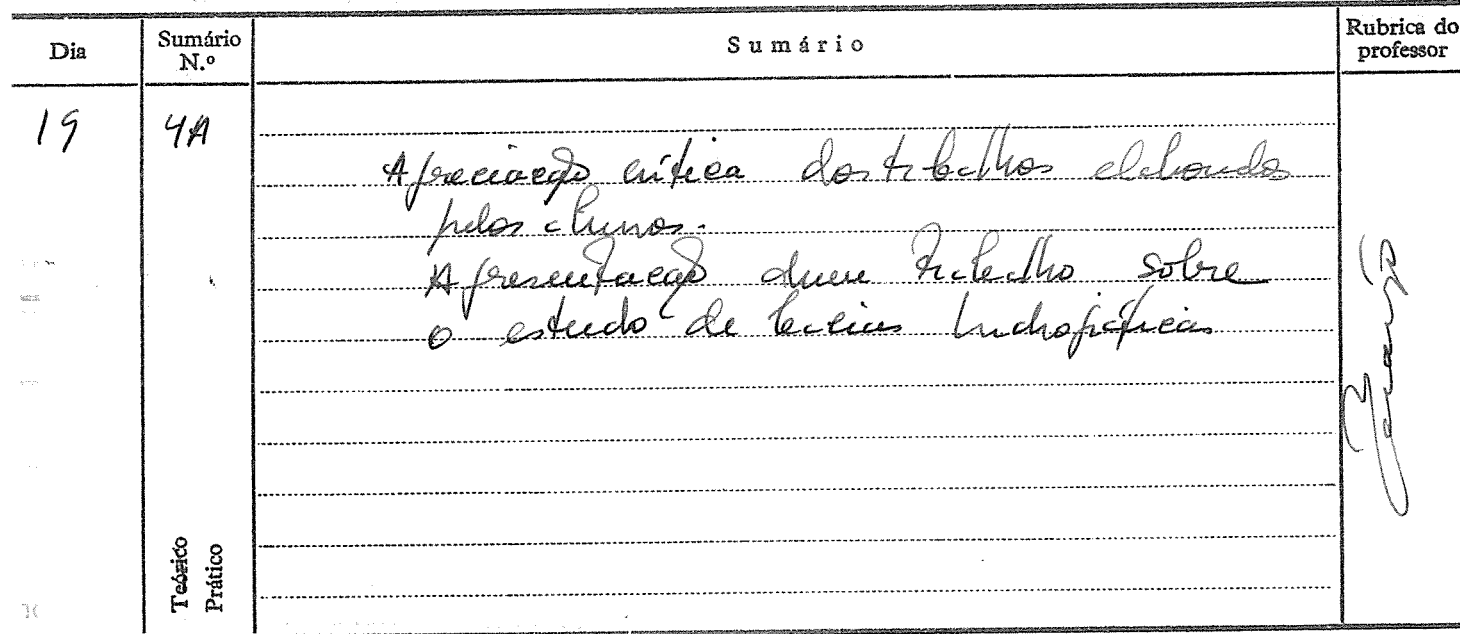 Dia
Sumário N.º
Sumário
Rubrica do professor
19
4A
Apreciação crítica dos trabalhos elaborados
pelos alunos.
Apresentação dum trabalho sobre
o estudo de bacias hidrográficas
Teórico
Prático